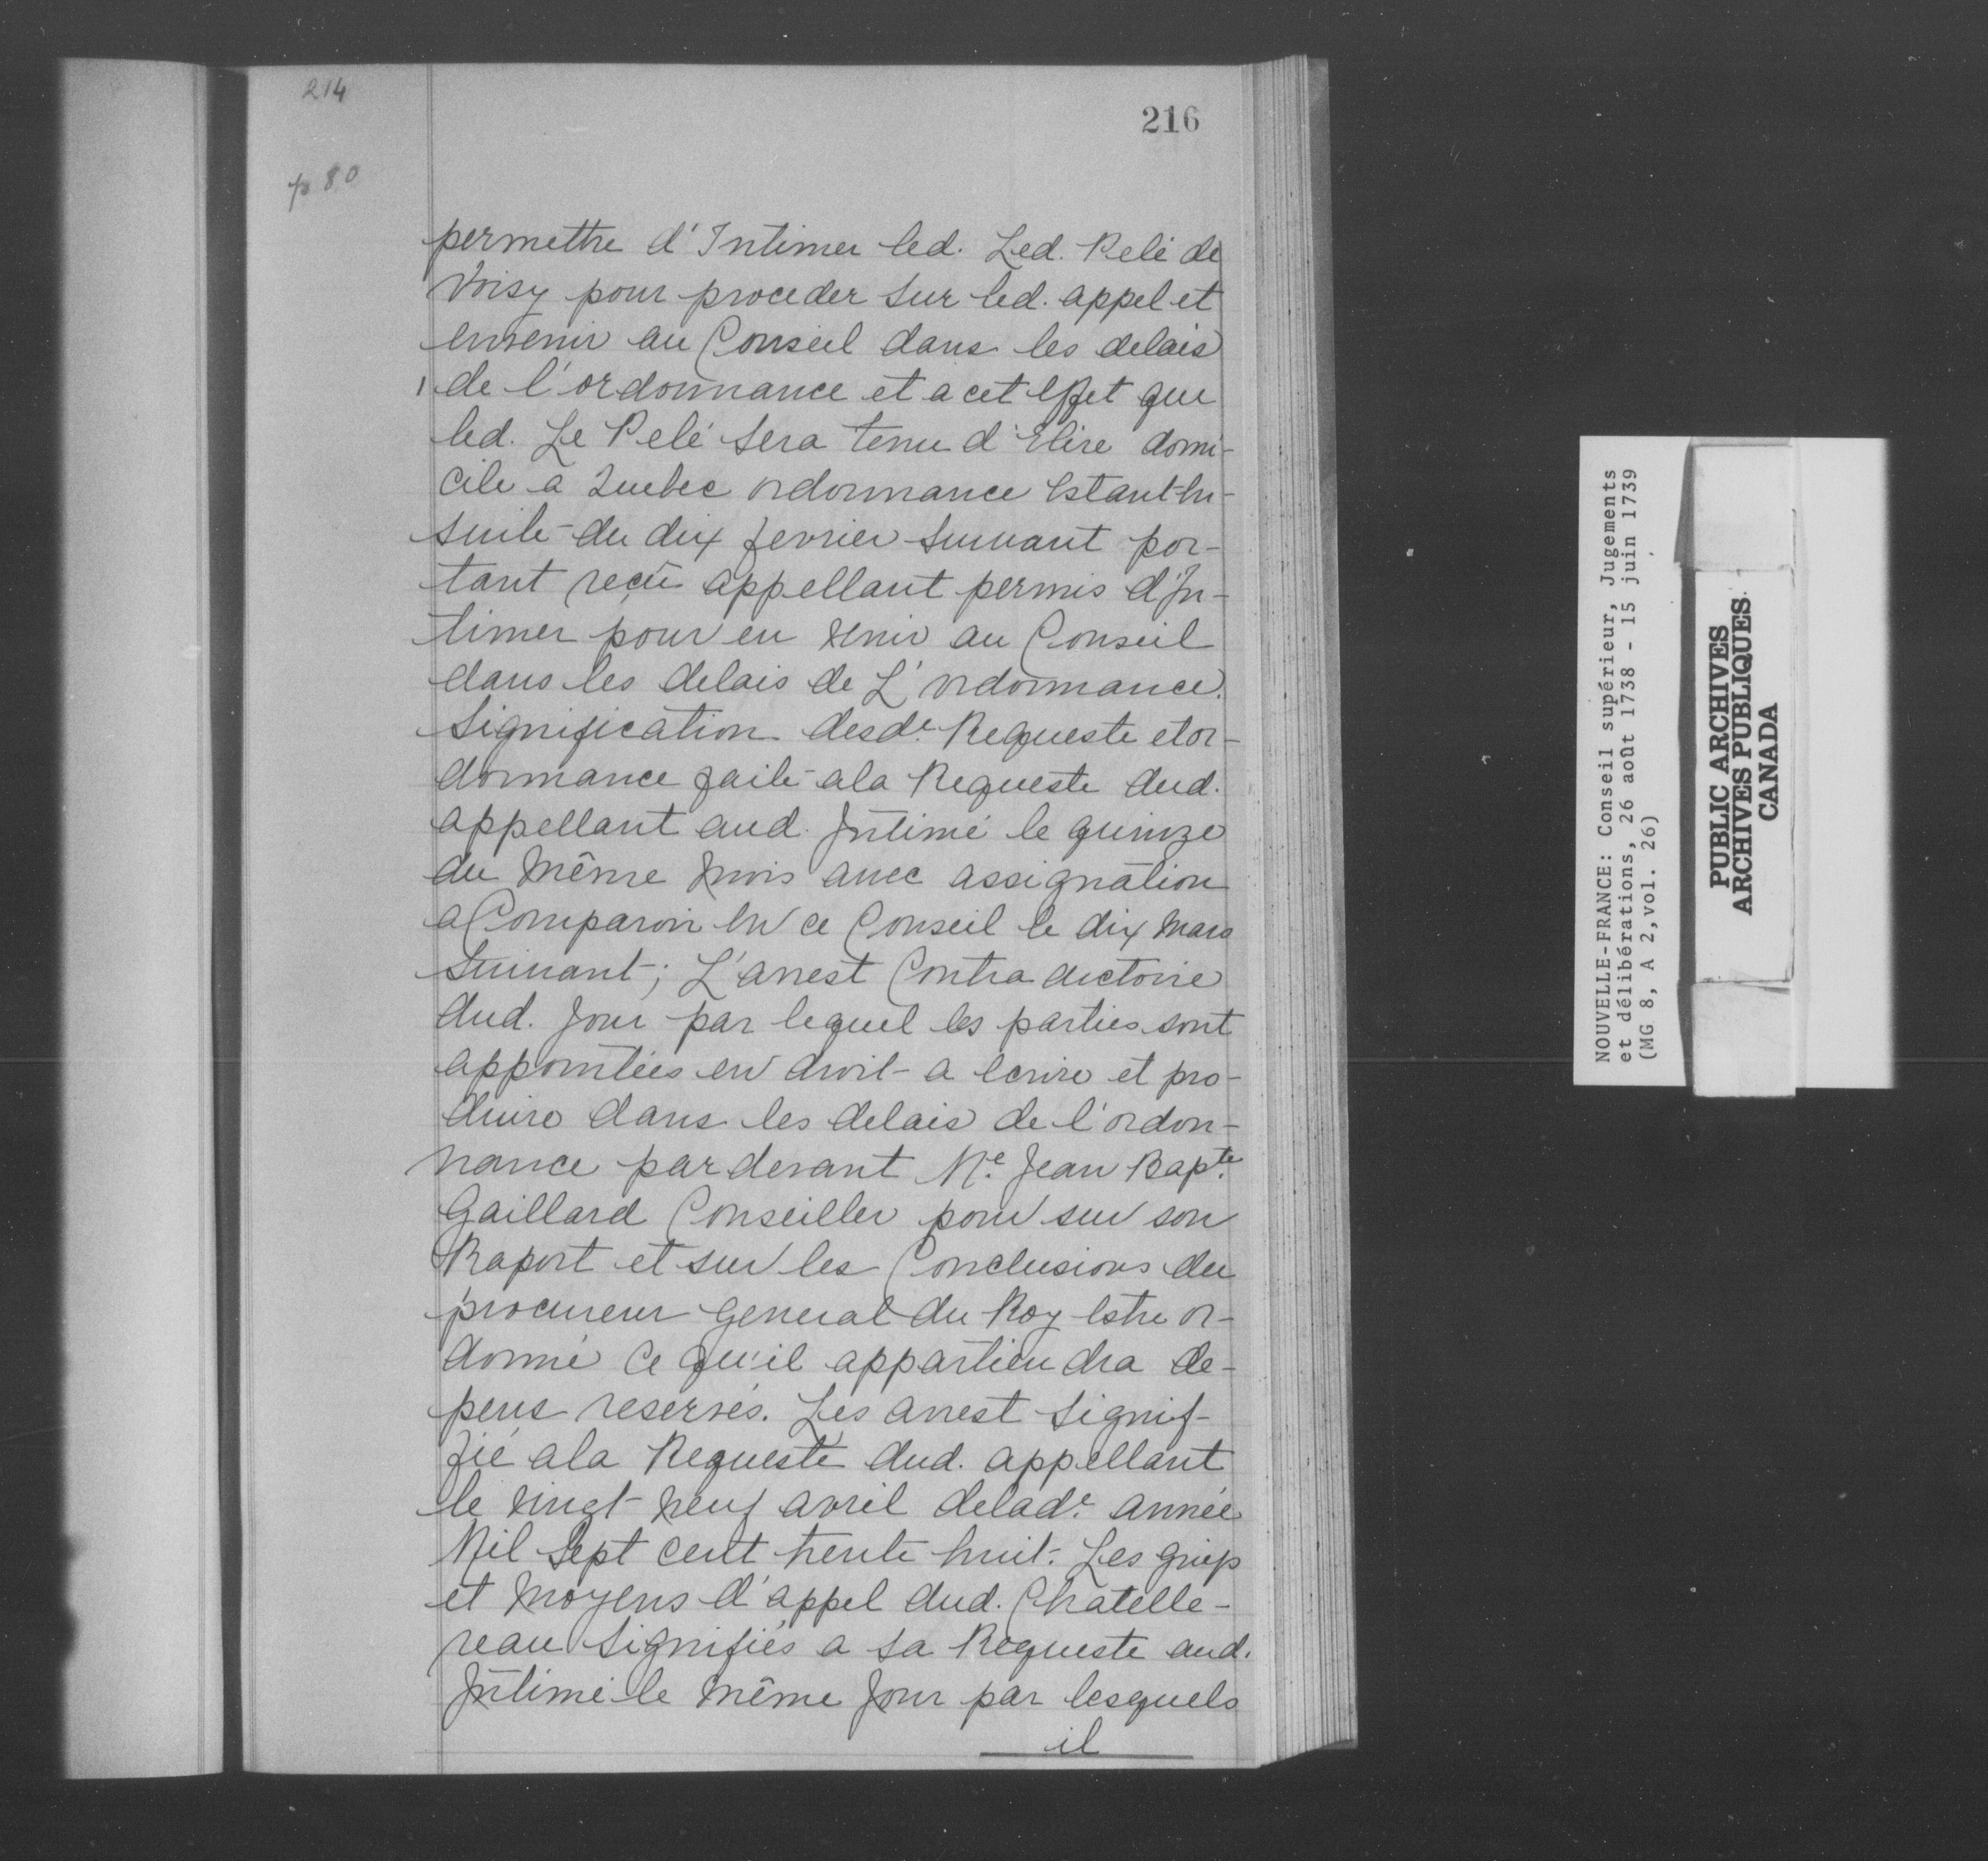 214
216
p 80
permettre d'Intimer led. Led. Pelé de
Voisy pour proceder sur led. appel et
envenir au Conseil dans les delais
de l'ordonnance et a cet effet que
led. Le Pelé sera tenu d'Elire domi-
cile a Quebec ordonnance Estant En-
suite du dix fevrier suivant por-
tant reçû appellant permis d'In-
timer pour en venir au Conseil
dans les delais de L'ordonnance.
Signification desde. Requeste et or-
donnance faite ala Requeste dud.
appellant aud. Intimé le quinze
du même mois avec assignation
a Comparoir En ce Conseil le dix mars
suivant; L'arrest Contradictoire
dud. Jour par lequel les parties sont
appointées en droit a Ecrire et pro-
duire dans les delais de l'ordon-
nance pardevant Me. Jean Bapte.
Gaillard Conseiller pour sur son
Raport et sur les Conclusions du
procureur General du Roy Estre or-
donné Ce qu'il appartiendra de-
pens reservés. Les arrest signif-
fié ala Requeste dud. appellant
le vingt neuf avril delade. année
Mil Sept cent trente huit. Les griefs
et moyens d'appel dud. Chatelle-
reau signifiés a sa Requeste aud.
Intimé le même Jour par lesquels
il
NOUVELLE-FRANCE: Conseil supérieur, Jugements
et délibérations, 26 août 1738 - 15 juin 1739
(MG 8, A 2,vol. 26)
PUBLIC ARCHIVES
ARCHIVES PUBLIQUES
CANADA